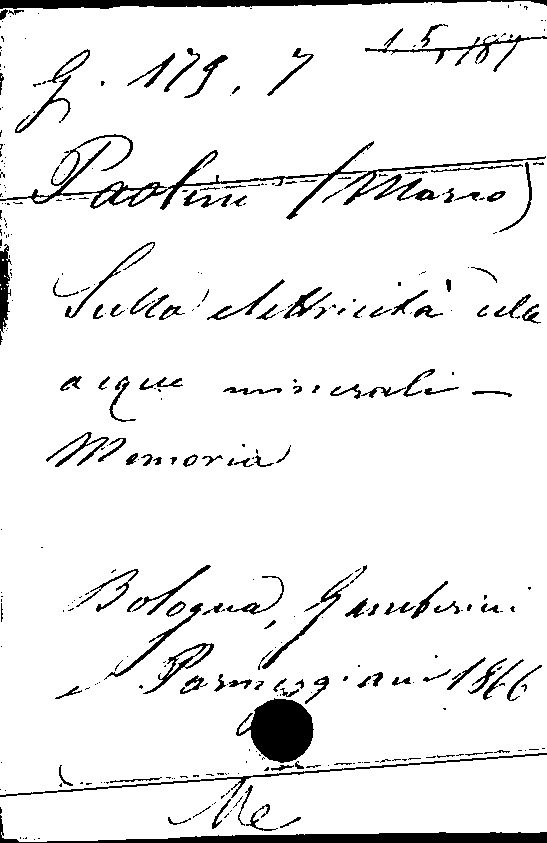 G. 179, 7 15,187
Paolini (Marco)
Sulla elettricità delle
acque minerali -
Memoria
Bologna, Gamberini
e Parmeggiani 1866
Me